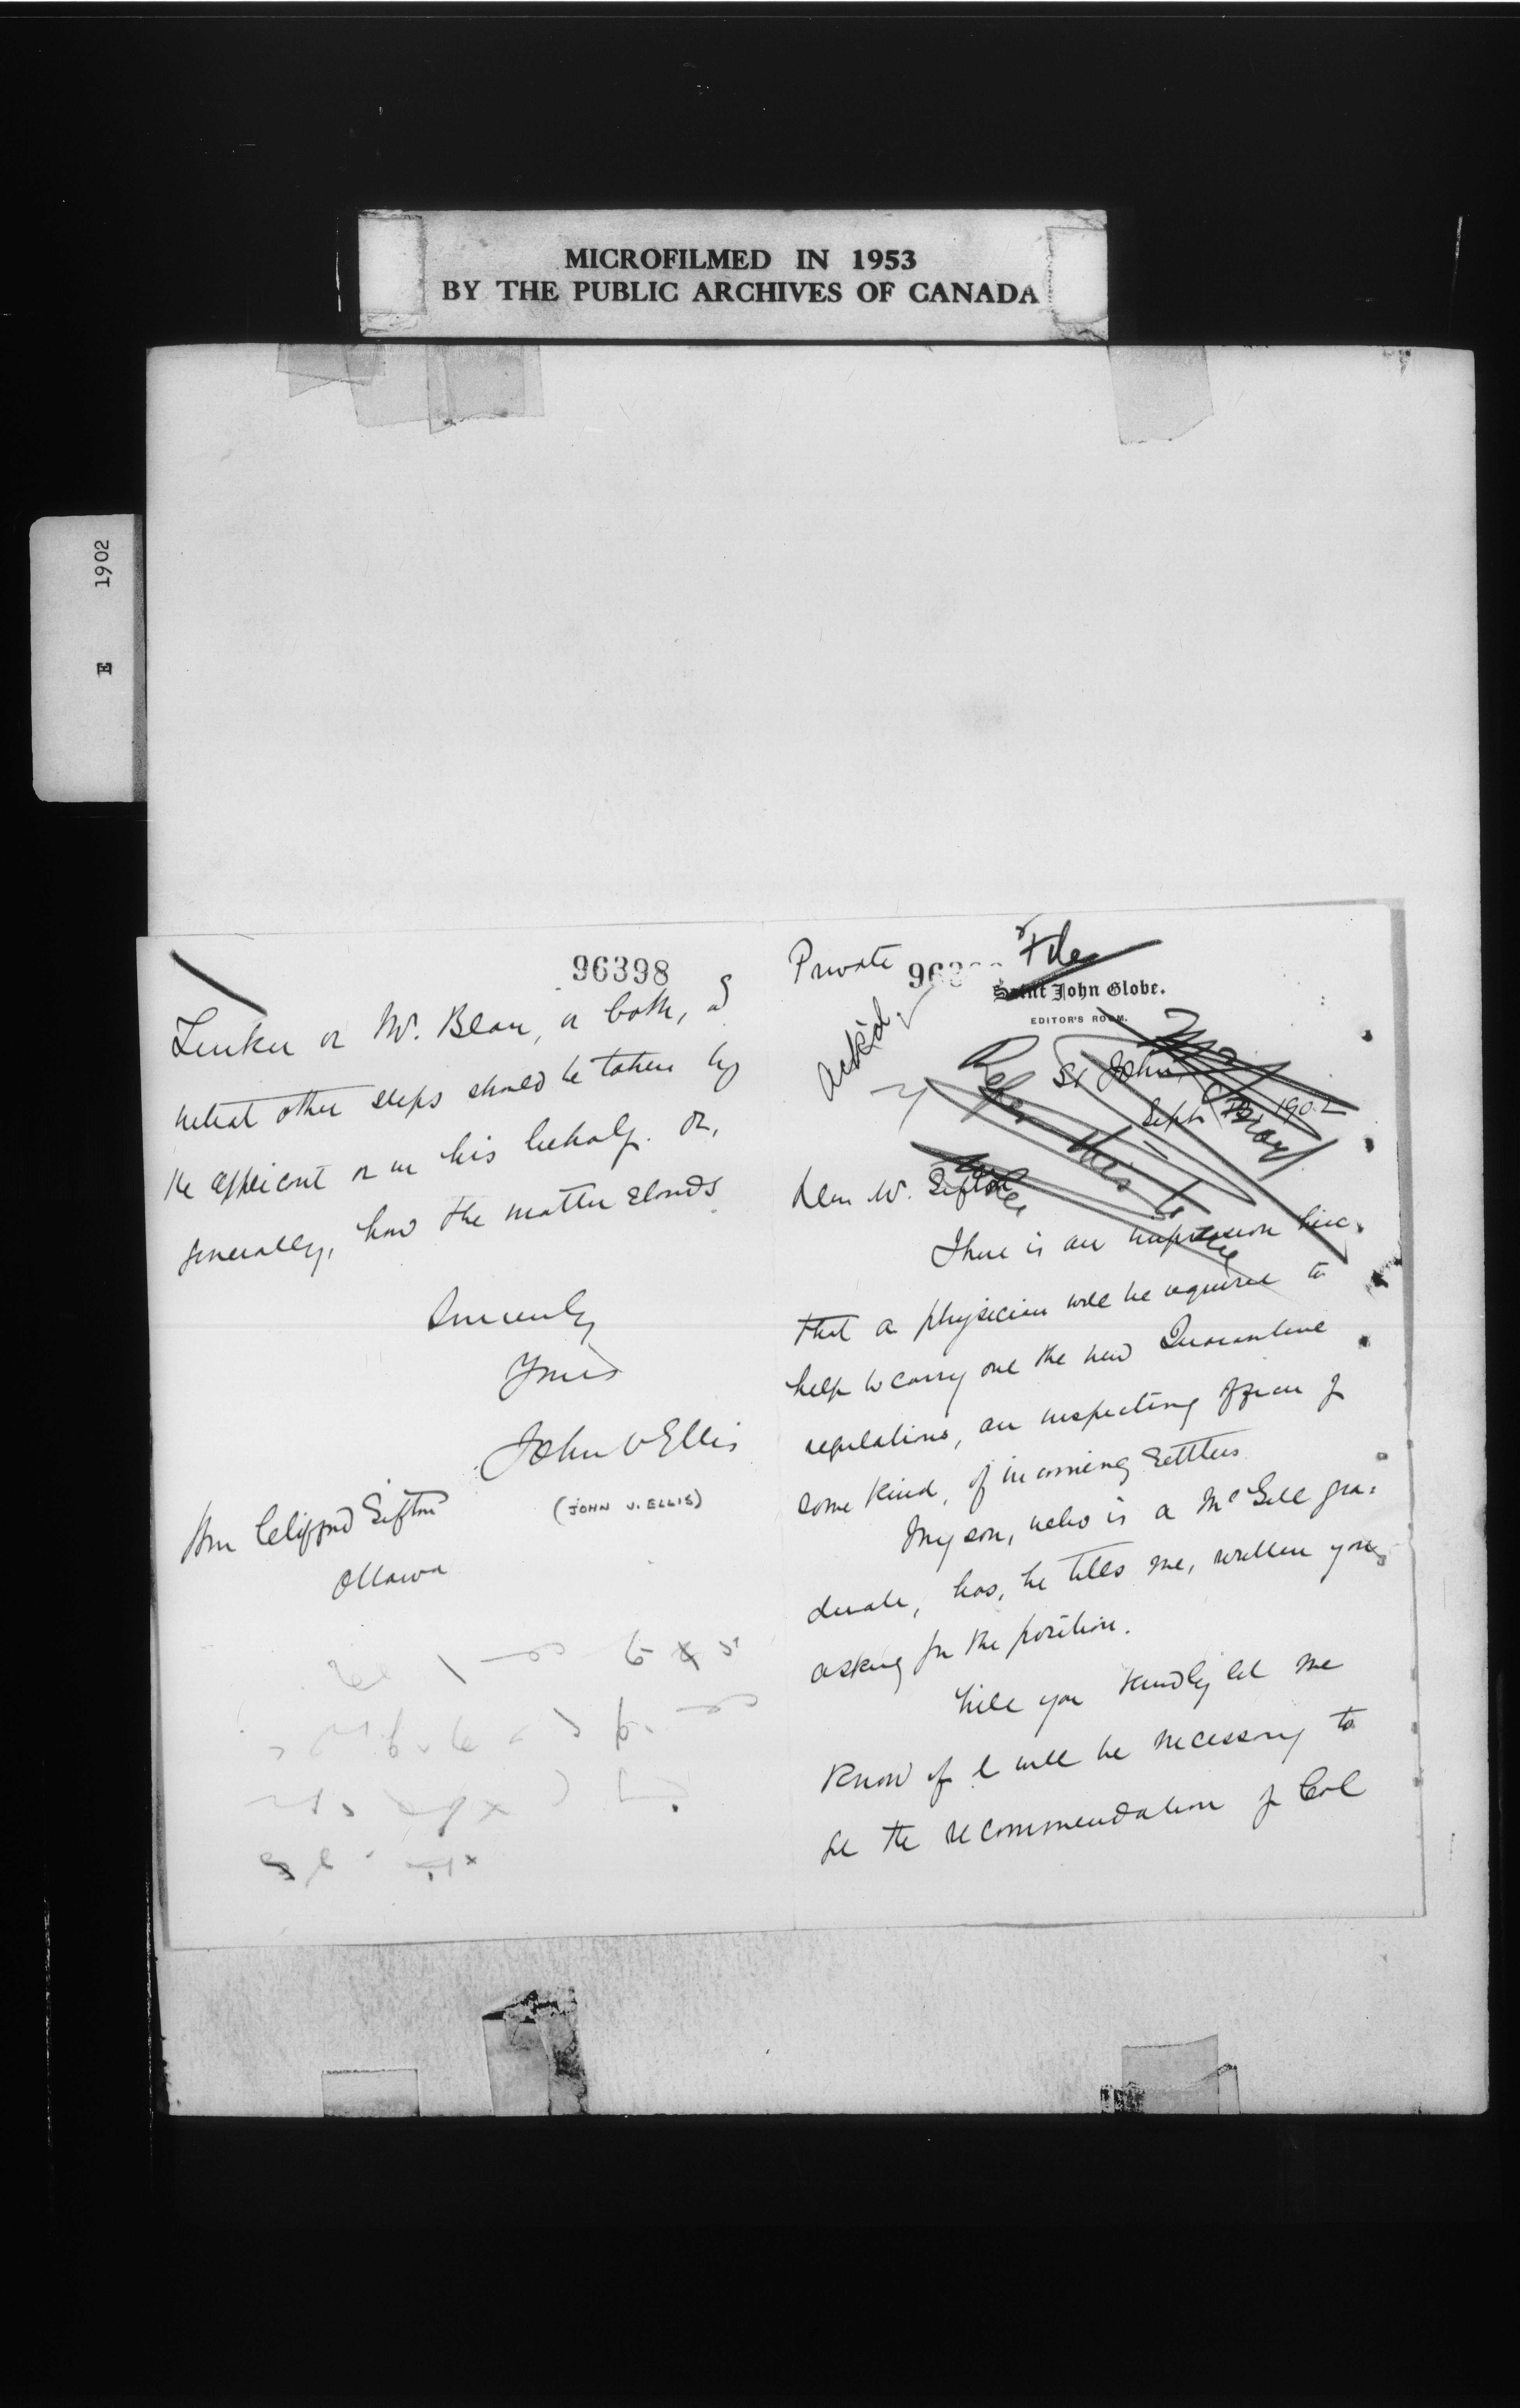 MICROFILMED IN 1953
BY THE PUBLIC ARCHIVES OF CANADA
1902
E
Private
File
Saint John Globe.
EDITOR'S ROOM.
Ack'd
Refer this to
St John
Sept 1902
Dear Mr. Sifton
There is an impression here
that a physician will be required to
help to carry out the new Quarantine
regulations, an inspecting officer of
some kind, of incoming settlers.
My son, who is a McGill gra-
duate, has, he tells me, written you,
asking for the position.
Will you kindly let me
know if it will be necessary to
the recommendation of Col
96398
Tucker or Mr. Blair, or both, &
what other steps should be taken by
the applicant or in his behalf. Or,
generally, how the matter stands.
Sincerely
Yours
John V Ellis
(JOHN V. ELLIS)
Hon Clifford Sifton
Ottawa